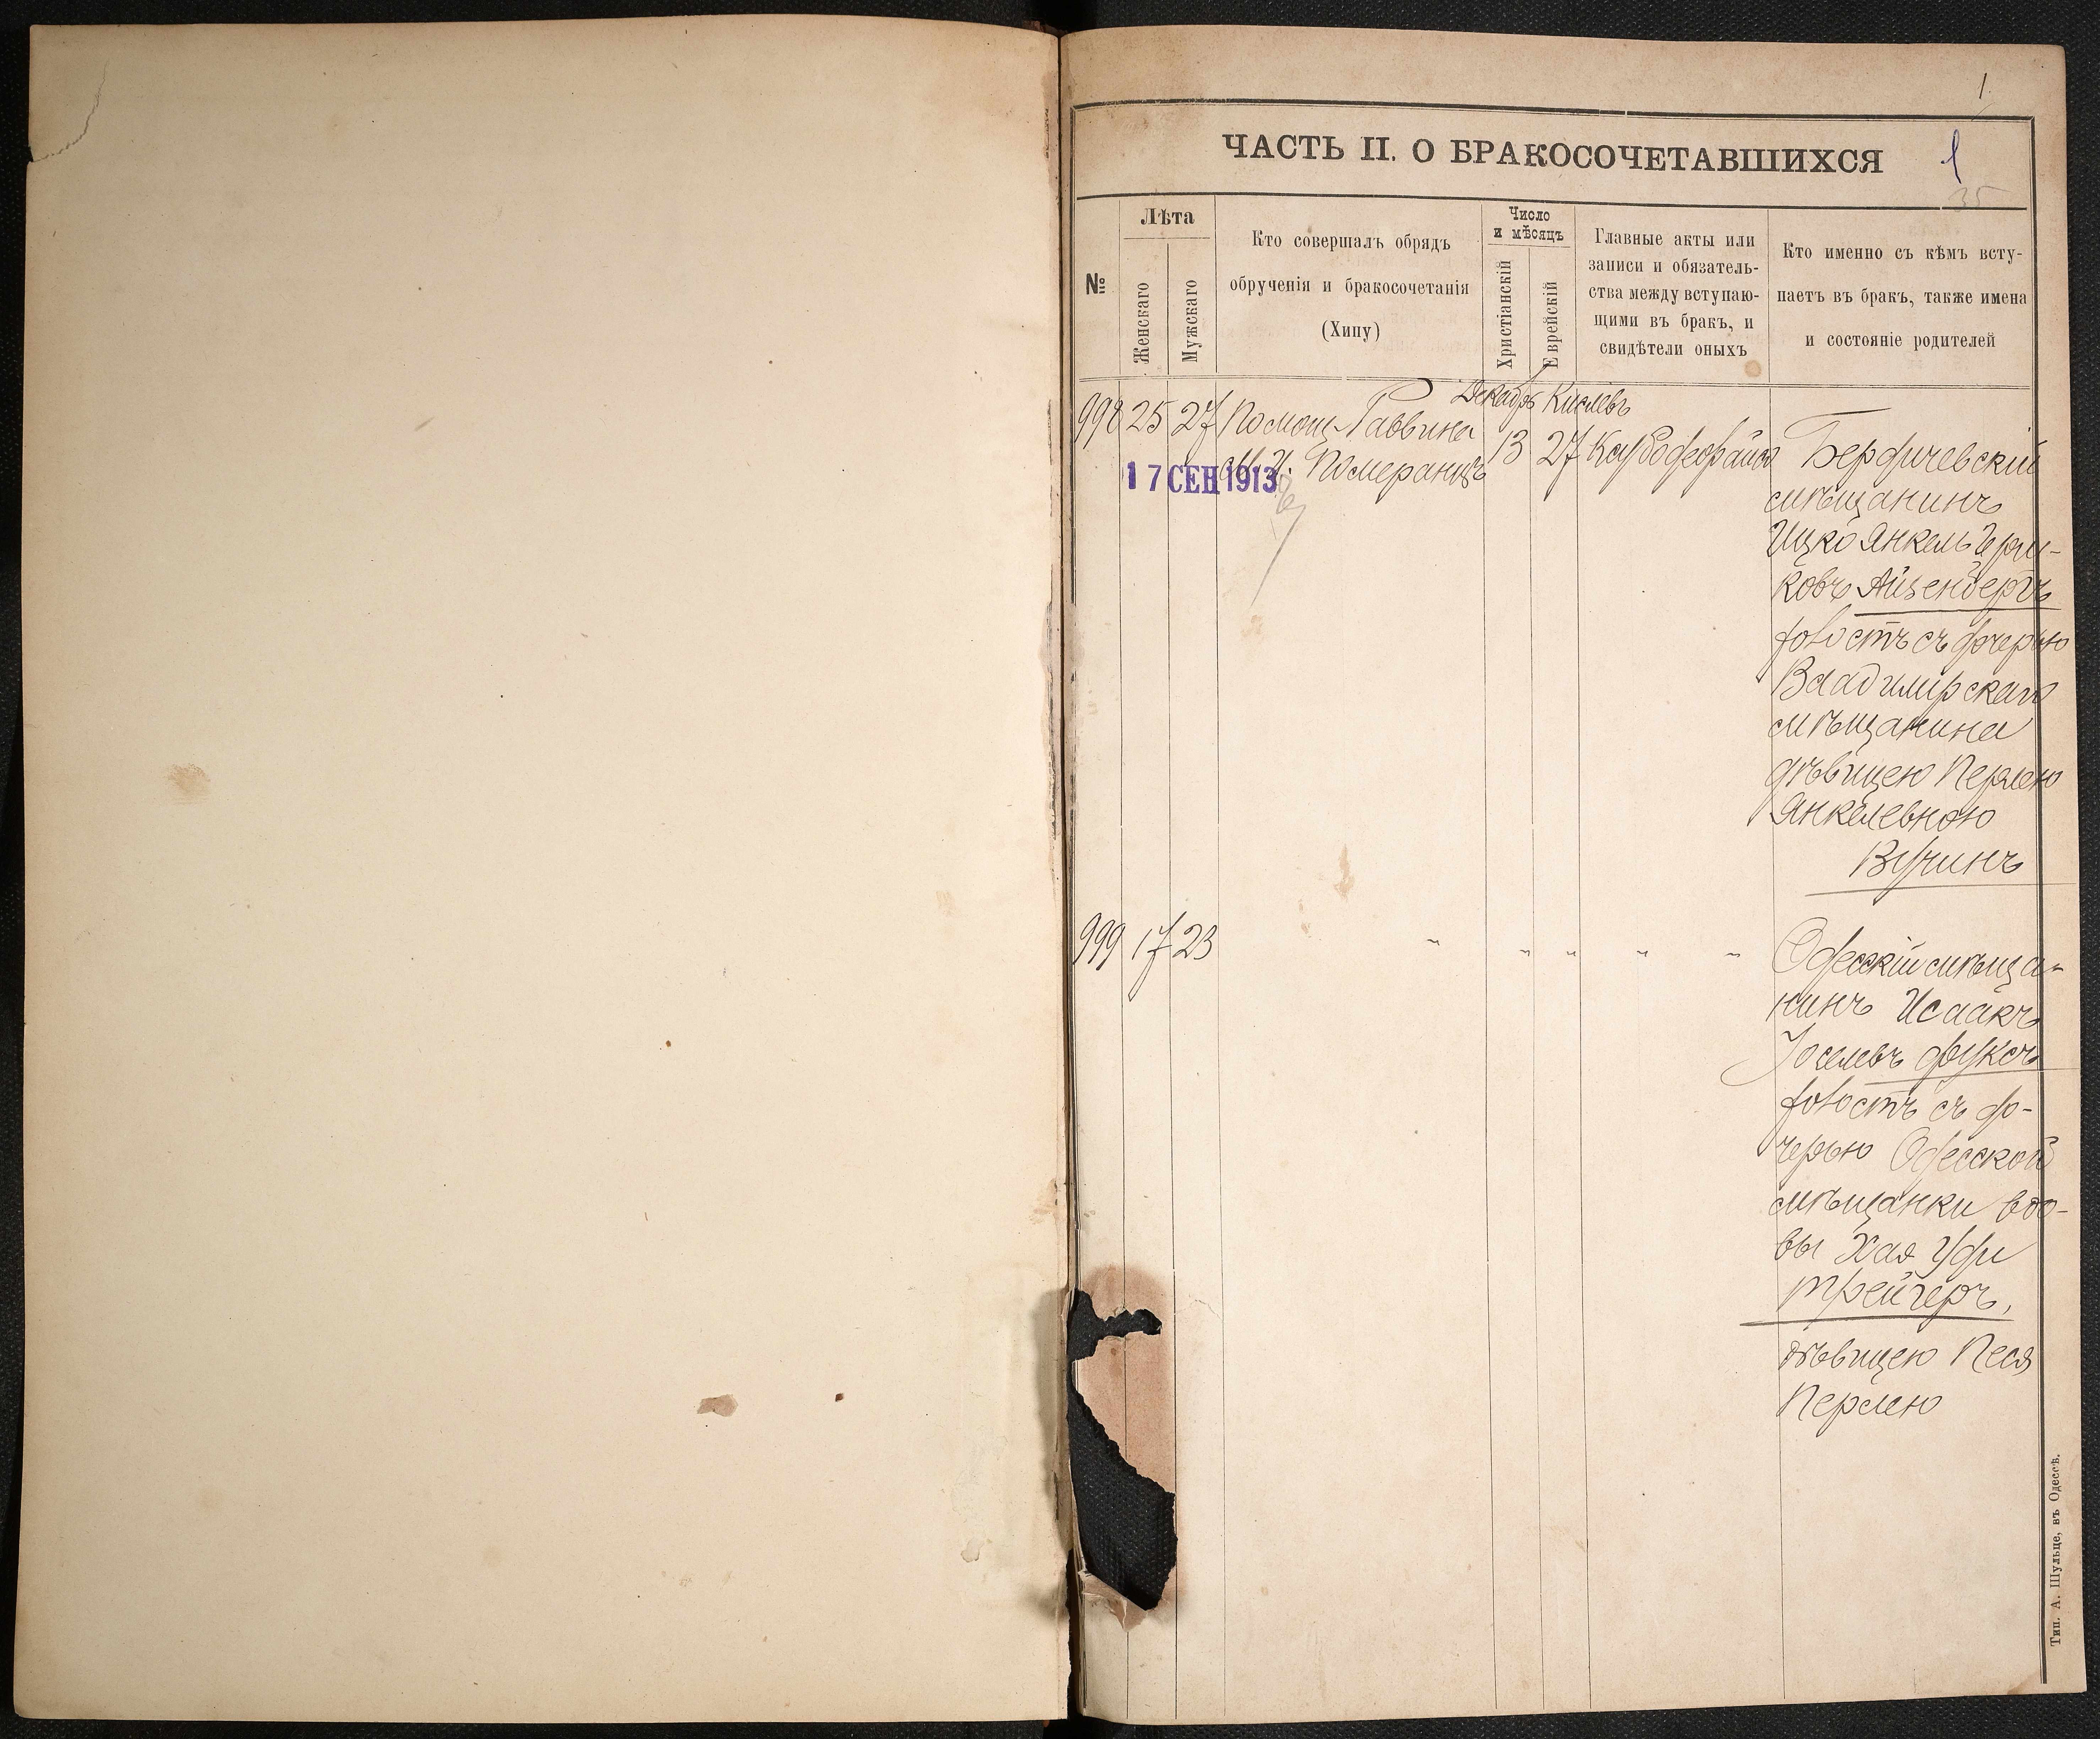 1.
ЧАСТЬ II. О БРАКОСОЧЕТАВШИХСЯ
1
35
№
Лѣта
Женскаго
Мужскаго
Кто совершалъ обрядъ
обрученія и бракосочетанія
(Хипу)
Число
и мѣсяцъ
Христіанскій
Еврейскій
Главные акты или
записи и обязатель-
ства между вступаю-
щими въ бракъ, и
свидѣтели оныхъ
Кто именно съ кѣмъ всту-
паетъ въ бракъ, также имена
и состояніе родителей
Декабрь Кислевъ
998 25 27 Помощ. Раввина
Померанцъ
13 27
17 СЕН 1913
Бердичевскій
мѣщанинъ
Ицко Янкель
Айзенбергъ
холостъ съ дочерью
Владимирскаго
мѣщанина
дѣвицею Перлею
Янкелевною
Вучинъ
999 17 23 " " " " "
Одесскій мѣща-
нинъ Исаакъ
Іоселевъ Фуксъ
холостъ съ до-
черью Одесской
мѣщанки вдо-
вы Хая Уди
Трейгеръ,
дѣвицею Песя
Перлею
Тип. А. Шульце, въ Одессѣ.